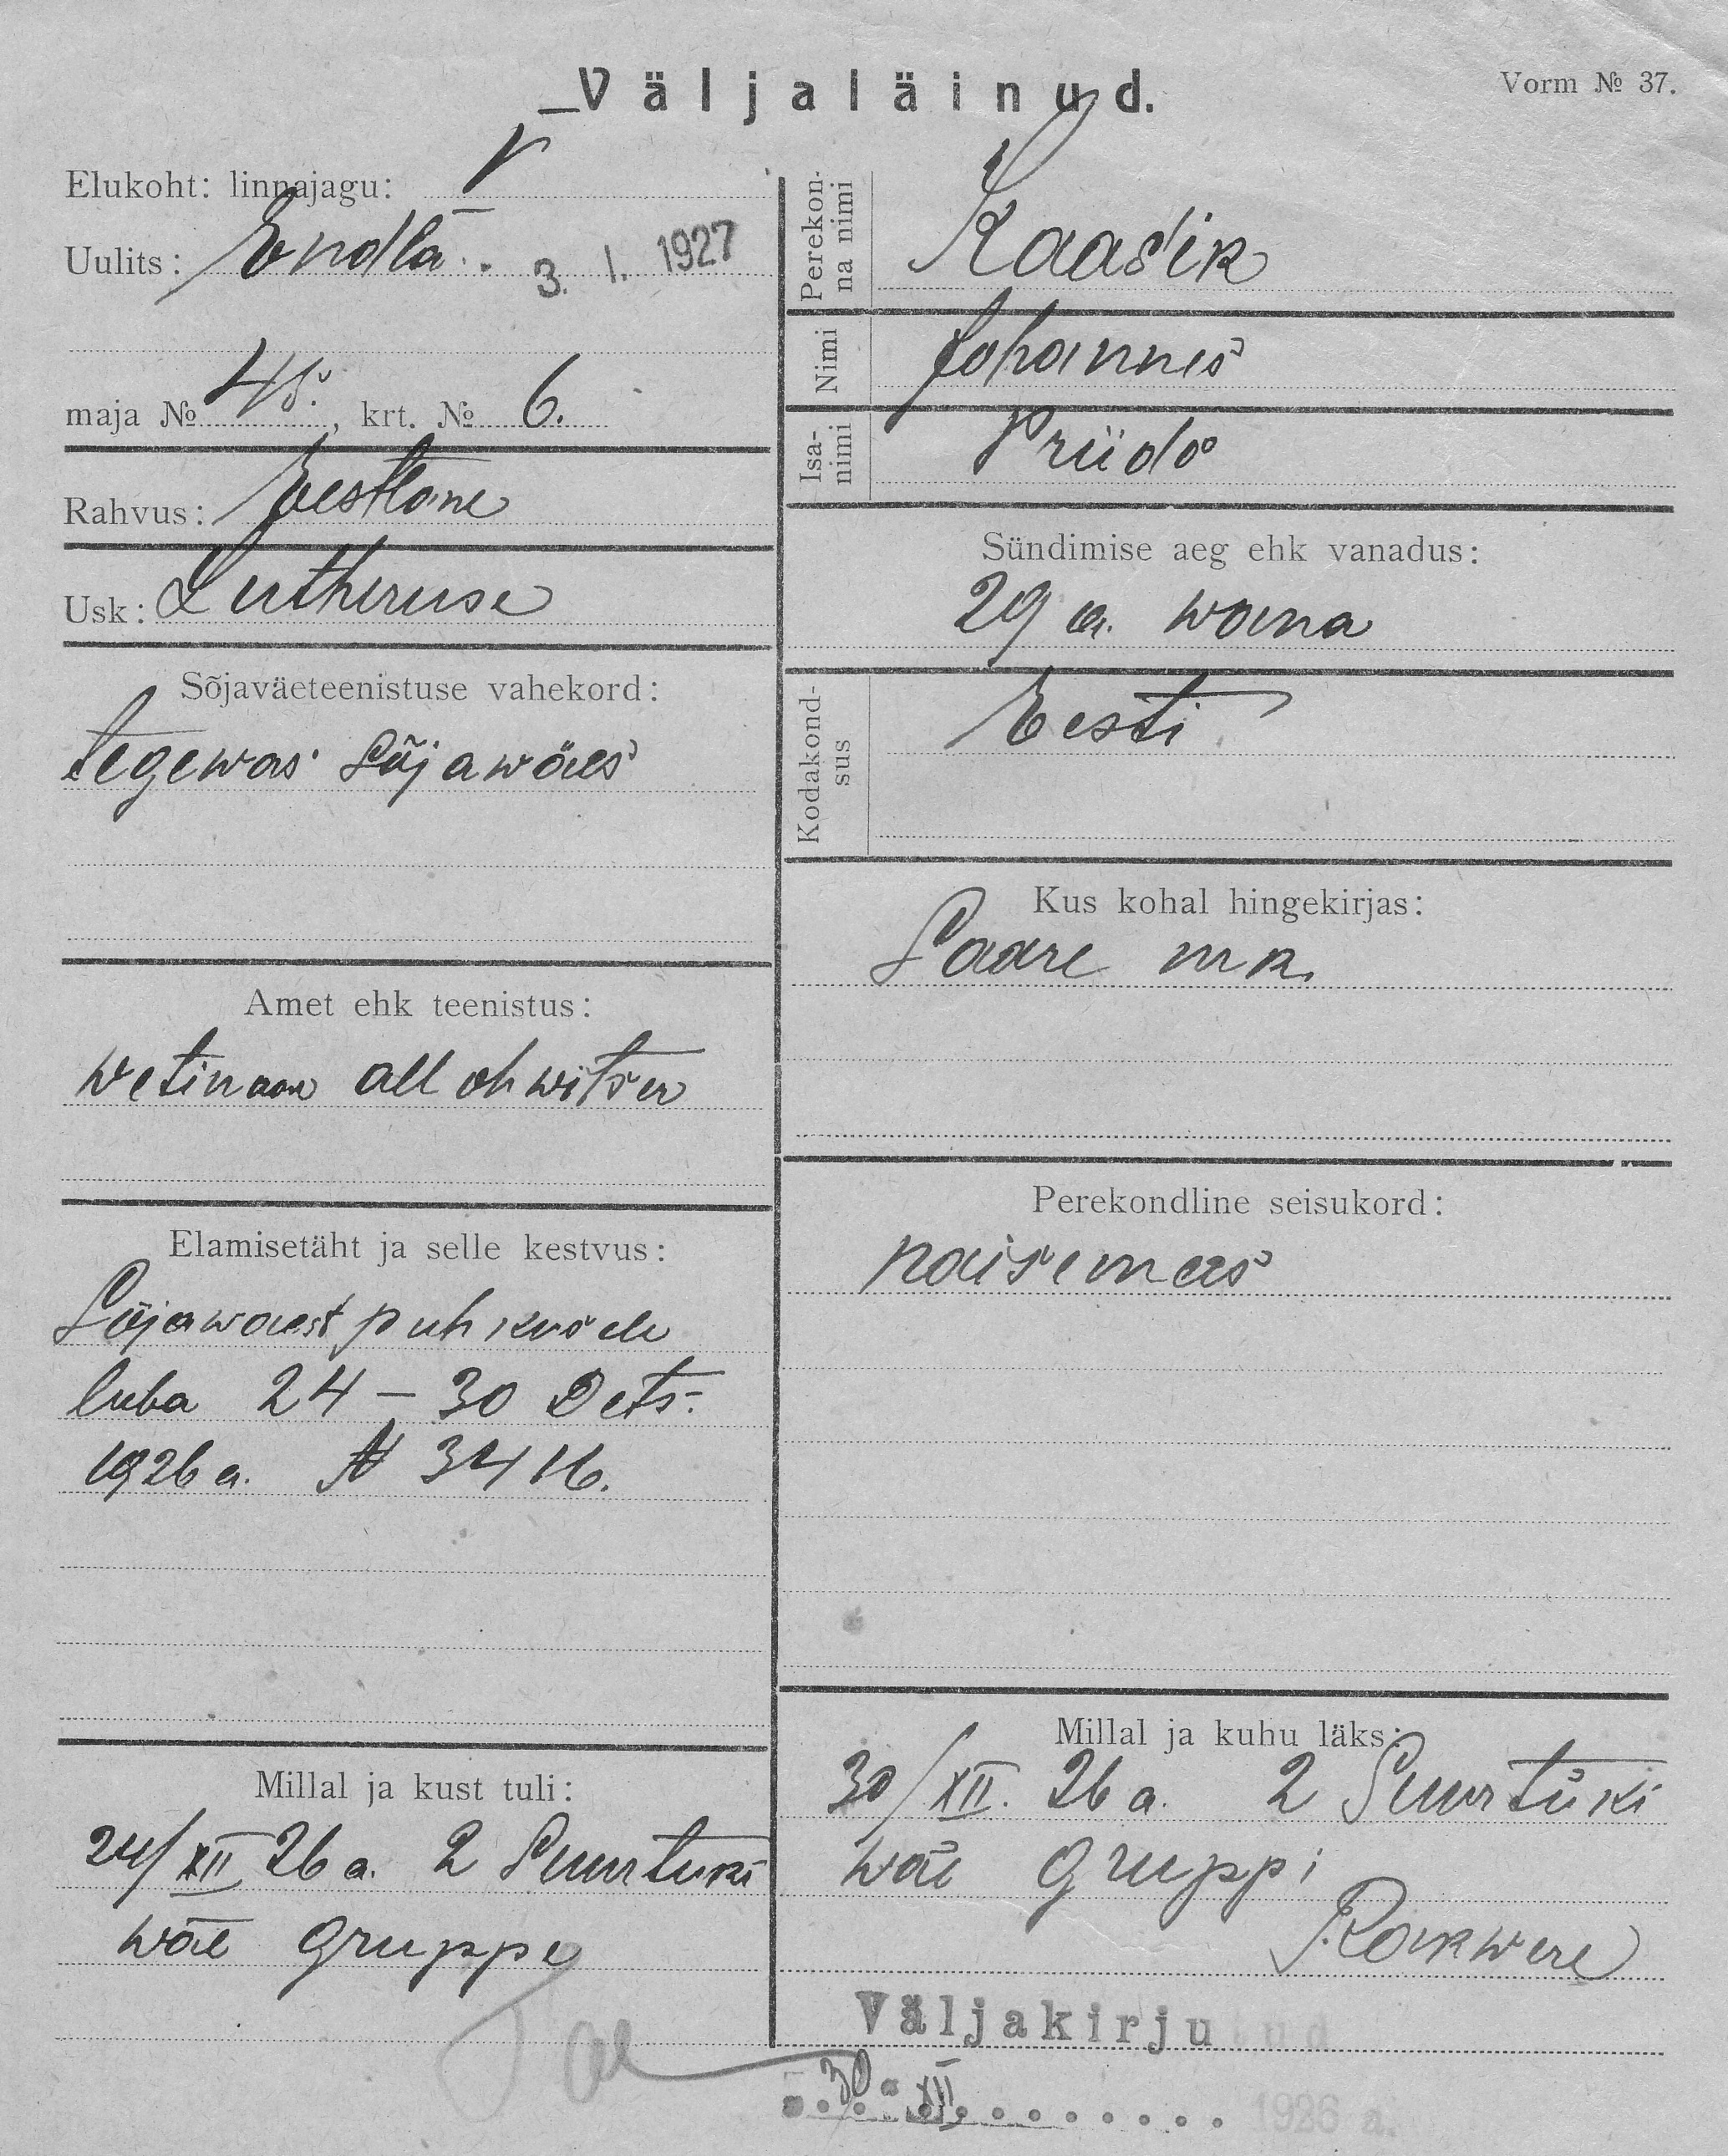 Väljaläinud.
Vorm № 37.
Elukoht: linnajagu: V
Uulits: Endla 3. I. 1927
maja № 45, krt. № 6.
Rahvus: Eestlane
Usk: Lutheruse
Sõjaväeteenistuse vahekord:
tegewas Sõjawäes
Amet ehk teenistus:
wetinaar all ohwitser
Elamisetäht ja selle kestvus:
Sõjawäest puhkusele
luba 24 – 30 Dets.
1926 a. № 3416.
Millal ja kust tuli:
24/XII 26 a. 2 Suurtüki
wäe gruppe
Perekonna nimi Kaasik
Nimi Johannes
Isanimi Priido
Sündimise aeg ehk vanadus:
29 a. wana
Kodakondsus Eesti
Kus kohal hingekirjas:
Saare mk.
Perekondline seisukord:
naisemees
Millal ja kuhu läks:
30/XII. 26 a. 2 Suurtüki
wäe gruppi
Rakwere
Väljakirjutud
30 XII 1926 a.